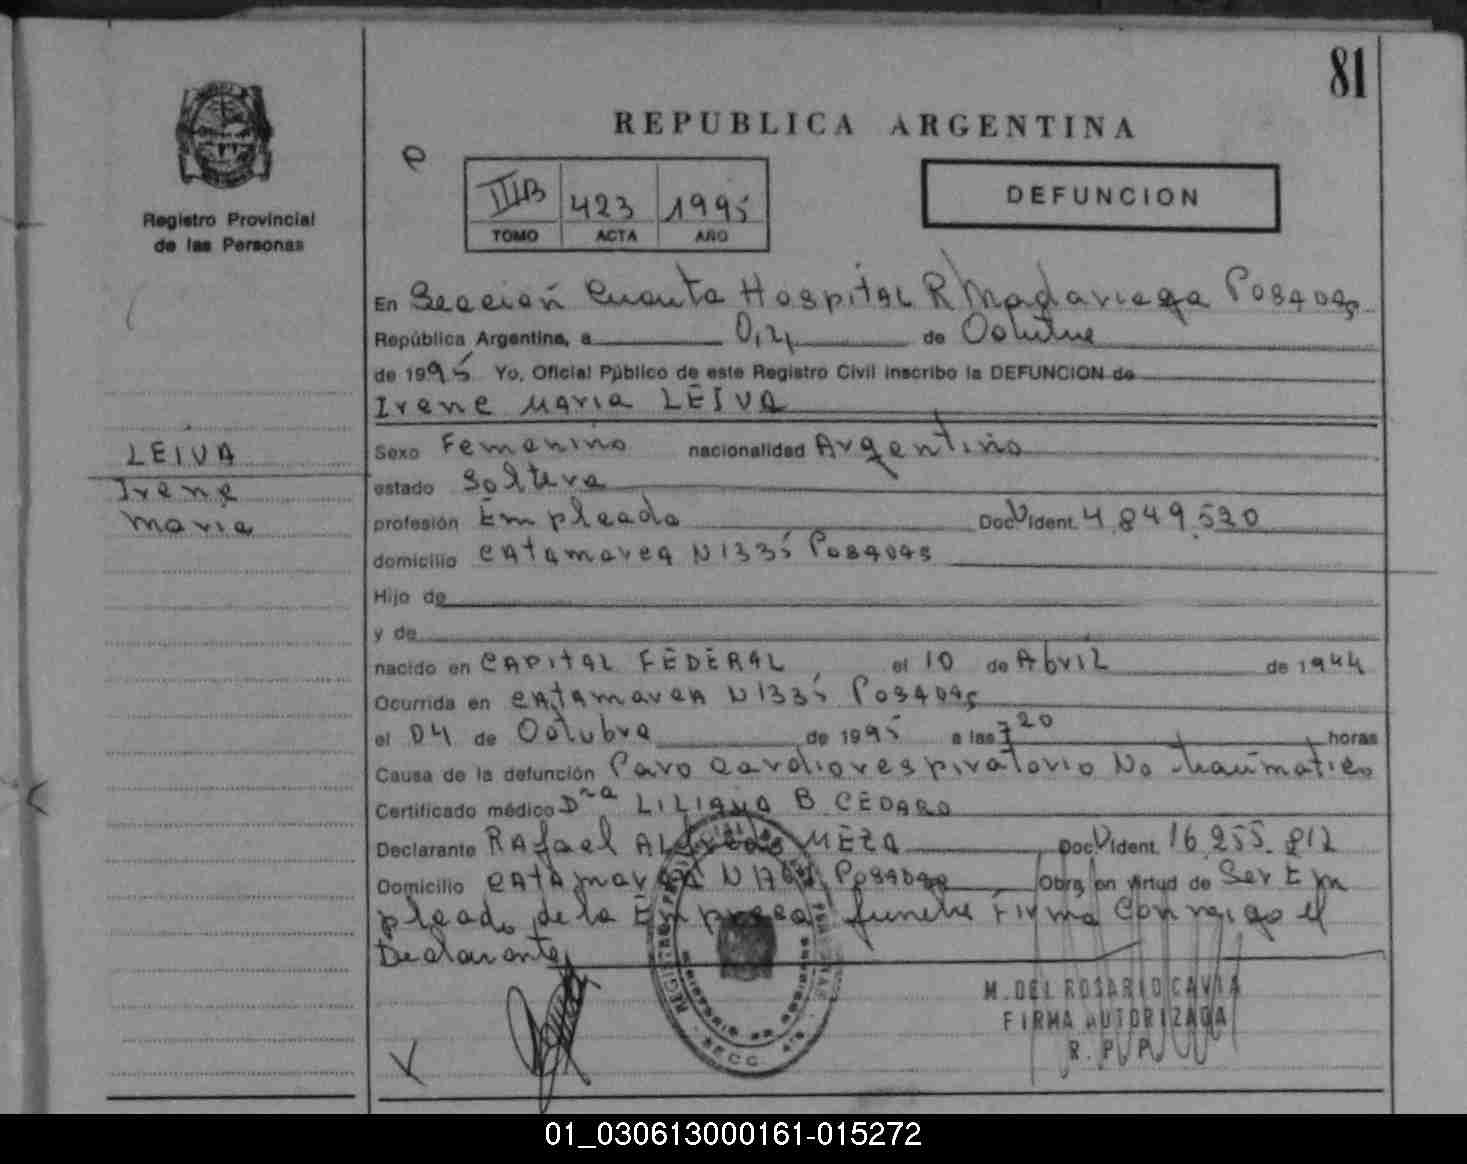 81
REPUBLICA ARGENTINA
Registro Provincial
de las Personas
IIIB 423 1995
TOMO ACTA AÑO
DEFUNCION
En Sección Cuarta Hospital R Madariaga Posadas
República Argentina, a 04 de Octubre
de 1995 Yo, Oficial Público de este Registro Civil inscribo la DEFUNCION de
Irene Maria LEIVA
LEIVA
Irene
Maria
Sexo Femenino nacionalidad Argentino
estado Soltera
profesión Empleada Doc. Ident. 4.849.520
domicilio Catamarca N1335 Posadas
Hijo de
y de
nacido en CAPITAL FEDERAL el 10 de Abril de 1944
Ocurrida en Catamarca N1335 Posadas
el 04 de Octubre de 1995 a las 7 20 horas
Causa de la defunción Paro Cardiorespiratorio No traumatico
Certificado médico Dra LILIANA B CEDARO
Declarante Rafael Alfredo MEZA Doc. Ident. 16.255.812
Domicilio Catamarca Posadas Obra en virtud de Ser Em
pleado de la Empresa funebre Firma Conmigo el
Declarante
M. DEL ROSARIO CAVIA
FIRMA AUTORIZADA
R. P. P.
SECC. 4ta
01_030613000161-015272